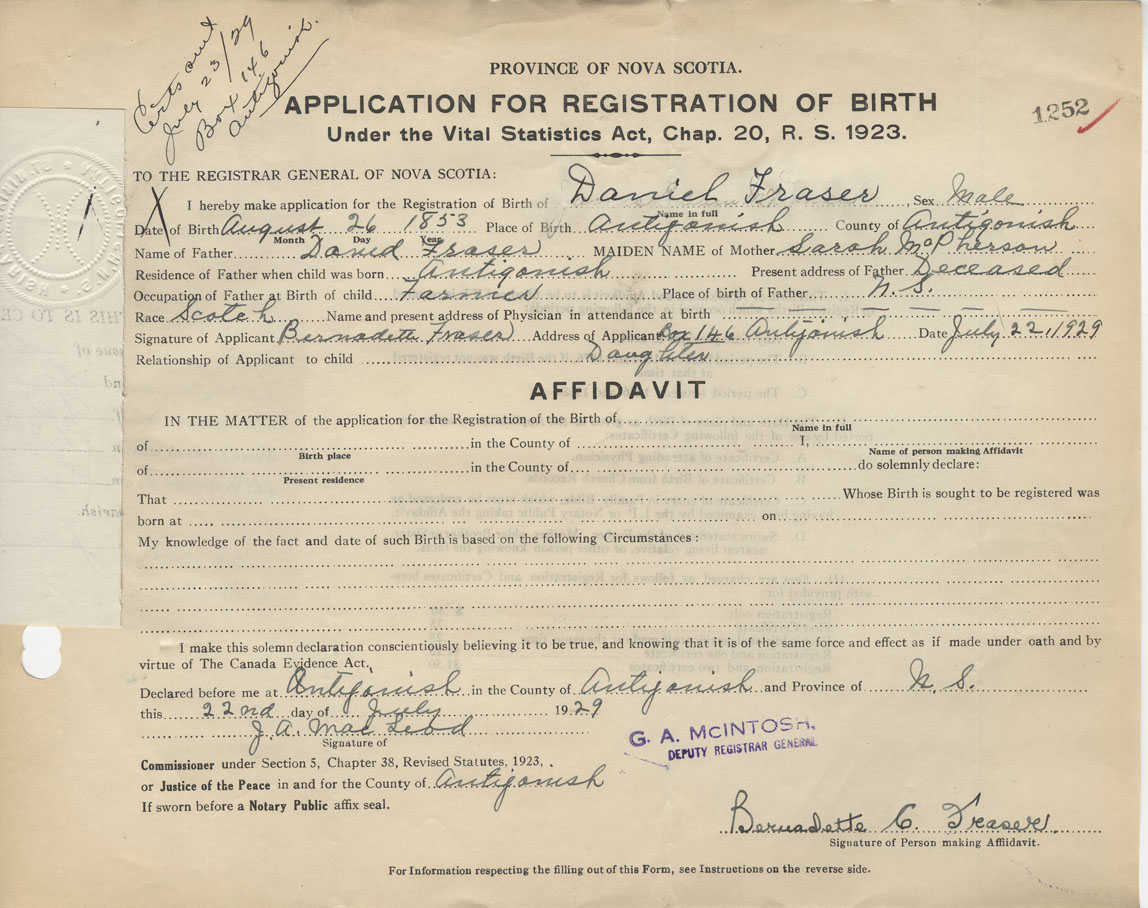 Certs sent
July 23/29
Box 146
Antigonish.
PROVINCE OF NOVA SCOTIA.
APPLICATION FOR REGISTRATION OF BIRTH
Under the Vital Statistics Act, Chap. 20, R. S. 1923.
1252
TO THE REGISTRAR GENERAL OF NOVA SCOTIA:
I hereby make application for the Registration of Birth of Daniel Fraser Sex Male
Name in full
Date of Birth August 26 1853 Place of Birth Antigonish County of Antigonish
Month Day Year
Name of Father David Fraser MAIDEN NAME of Mother Sarah McPherson
Residence of Father when child was born Antigonish Present address of Father Deceased
Occupation of Father at Birth of child Farmer Place of birth of Father N. S.
Race Scotch Name and present address of Physician in attendance at birth — — — —
Signature of Applicant Bernadette Fraser Address of Applicant Box 146 Antigonish Date July 22, 1929
Relationship of Applicant to child Daughter
AFFIDAVIT
IN THE MATTER of the application for the Registration of the Birth of
Name in full
of in the County of I,
Birth place Name of person making Affidavit
of in the County of do solemnly declare:
Present residence
That Whose Birth is sought to be registered was
born at on
My knowledge of the fact and date of such Birth is based on the following Circumstances:
I make this solemn declaration conscientiously believing it to be true, and knowing that it is of the same force and effect as if made under oath and by
virtue of The Canada Evidence Act.
Declared before me at Antigonish in the County of Antigonish and Province of N. S.
this 22nd day of July 1929
J. A. MacLeod
Signature of
G. A. McINTOSH,
DEPUTY REGISTRAR GENERAL
Commissioner under Section 5, Chapter 38, Revised Statutes, 1923,
or Justice of the Peace in and for the County of Antigonish
If sworn before a Notary Public affix seal.
Bernadette C. Fraser
Signature of Person making Affiidavit.
For Information respecting the filling out of this Form, see Instructions on the reverse side.